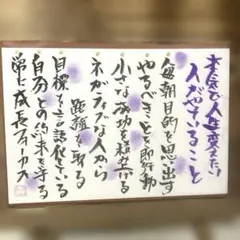 本気で人生変えたい
人がやっていること
毎朝目的を思い出す
やるべきことを即行動
小さな成功を積上げる
ネガティブな人から
距離を取る
目標を言語化している
自分との約束を守る
常に成長フォーカス